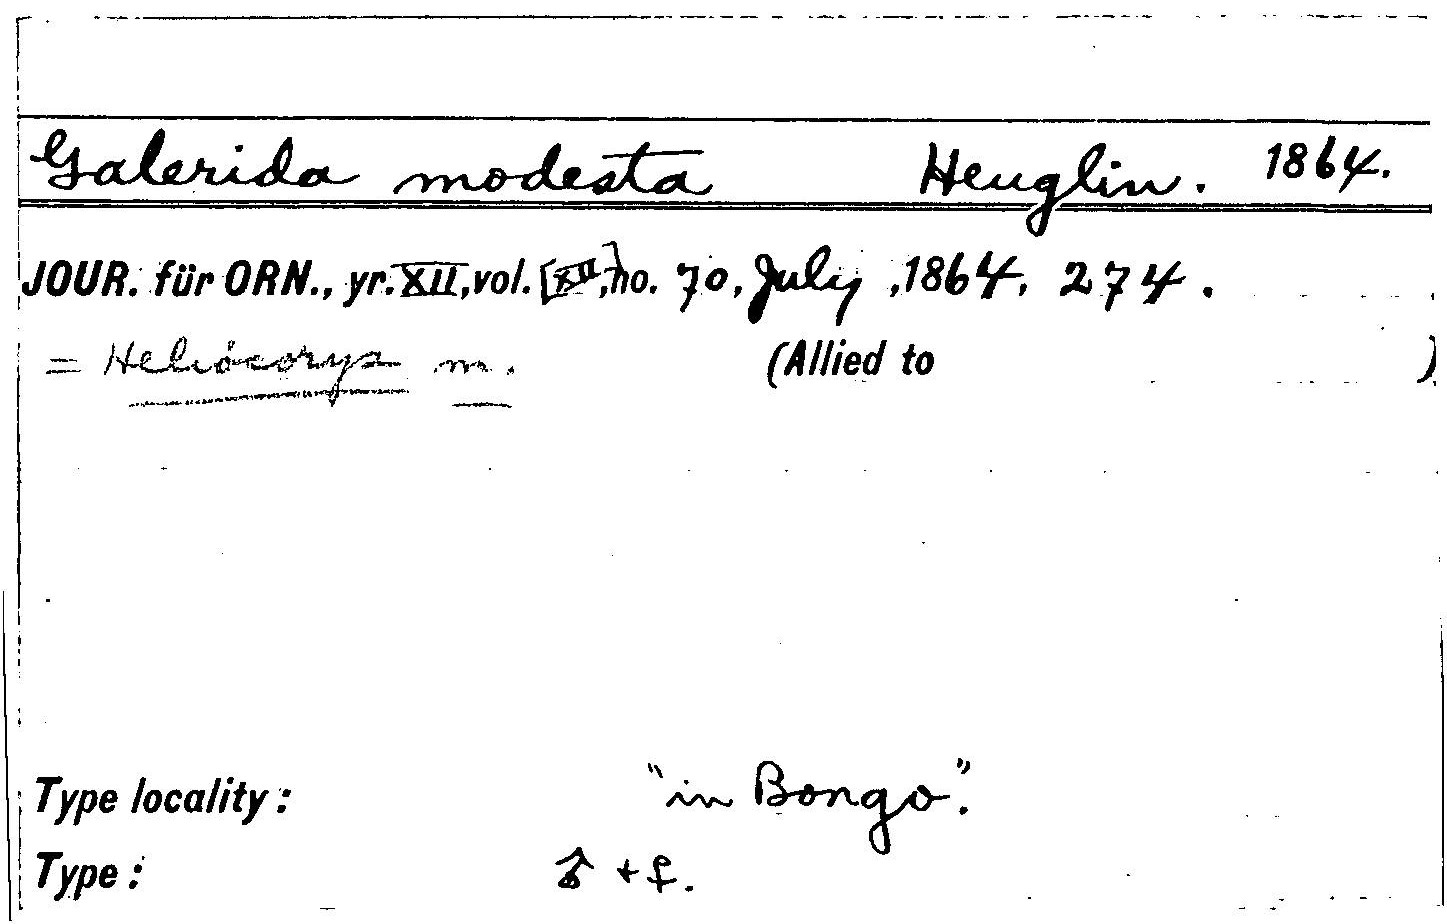 Galerida modesta Heuglin. 1864.
JOUR. für ORN., yr. XII, vol. [XII], no. 70, July, 1864, 274.
= Heliócorys m. (Allied to )
Type locality: "in Bongo".
Type: ♂ + ♀.